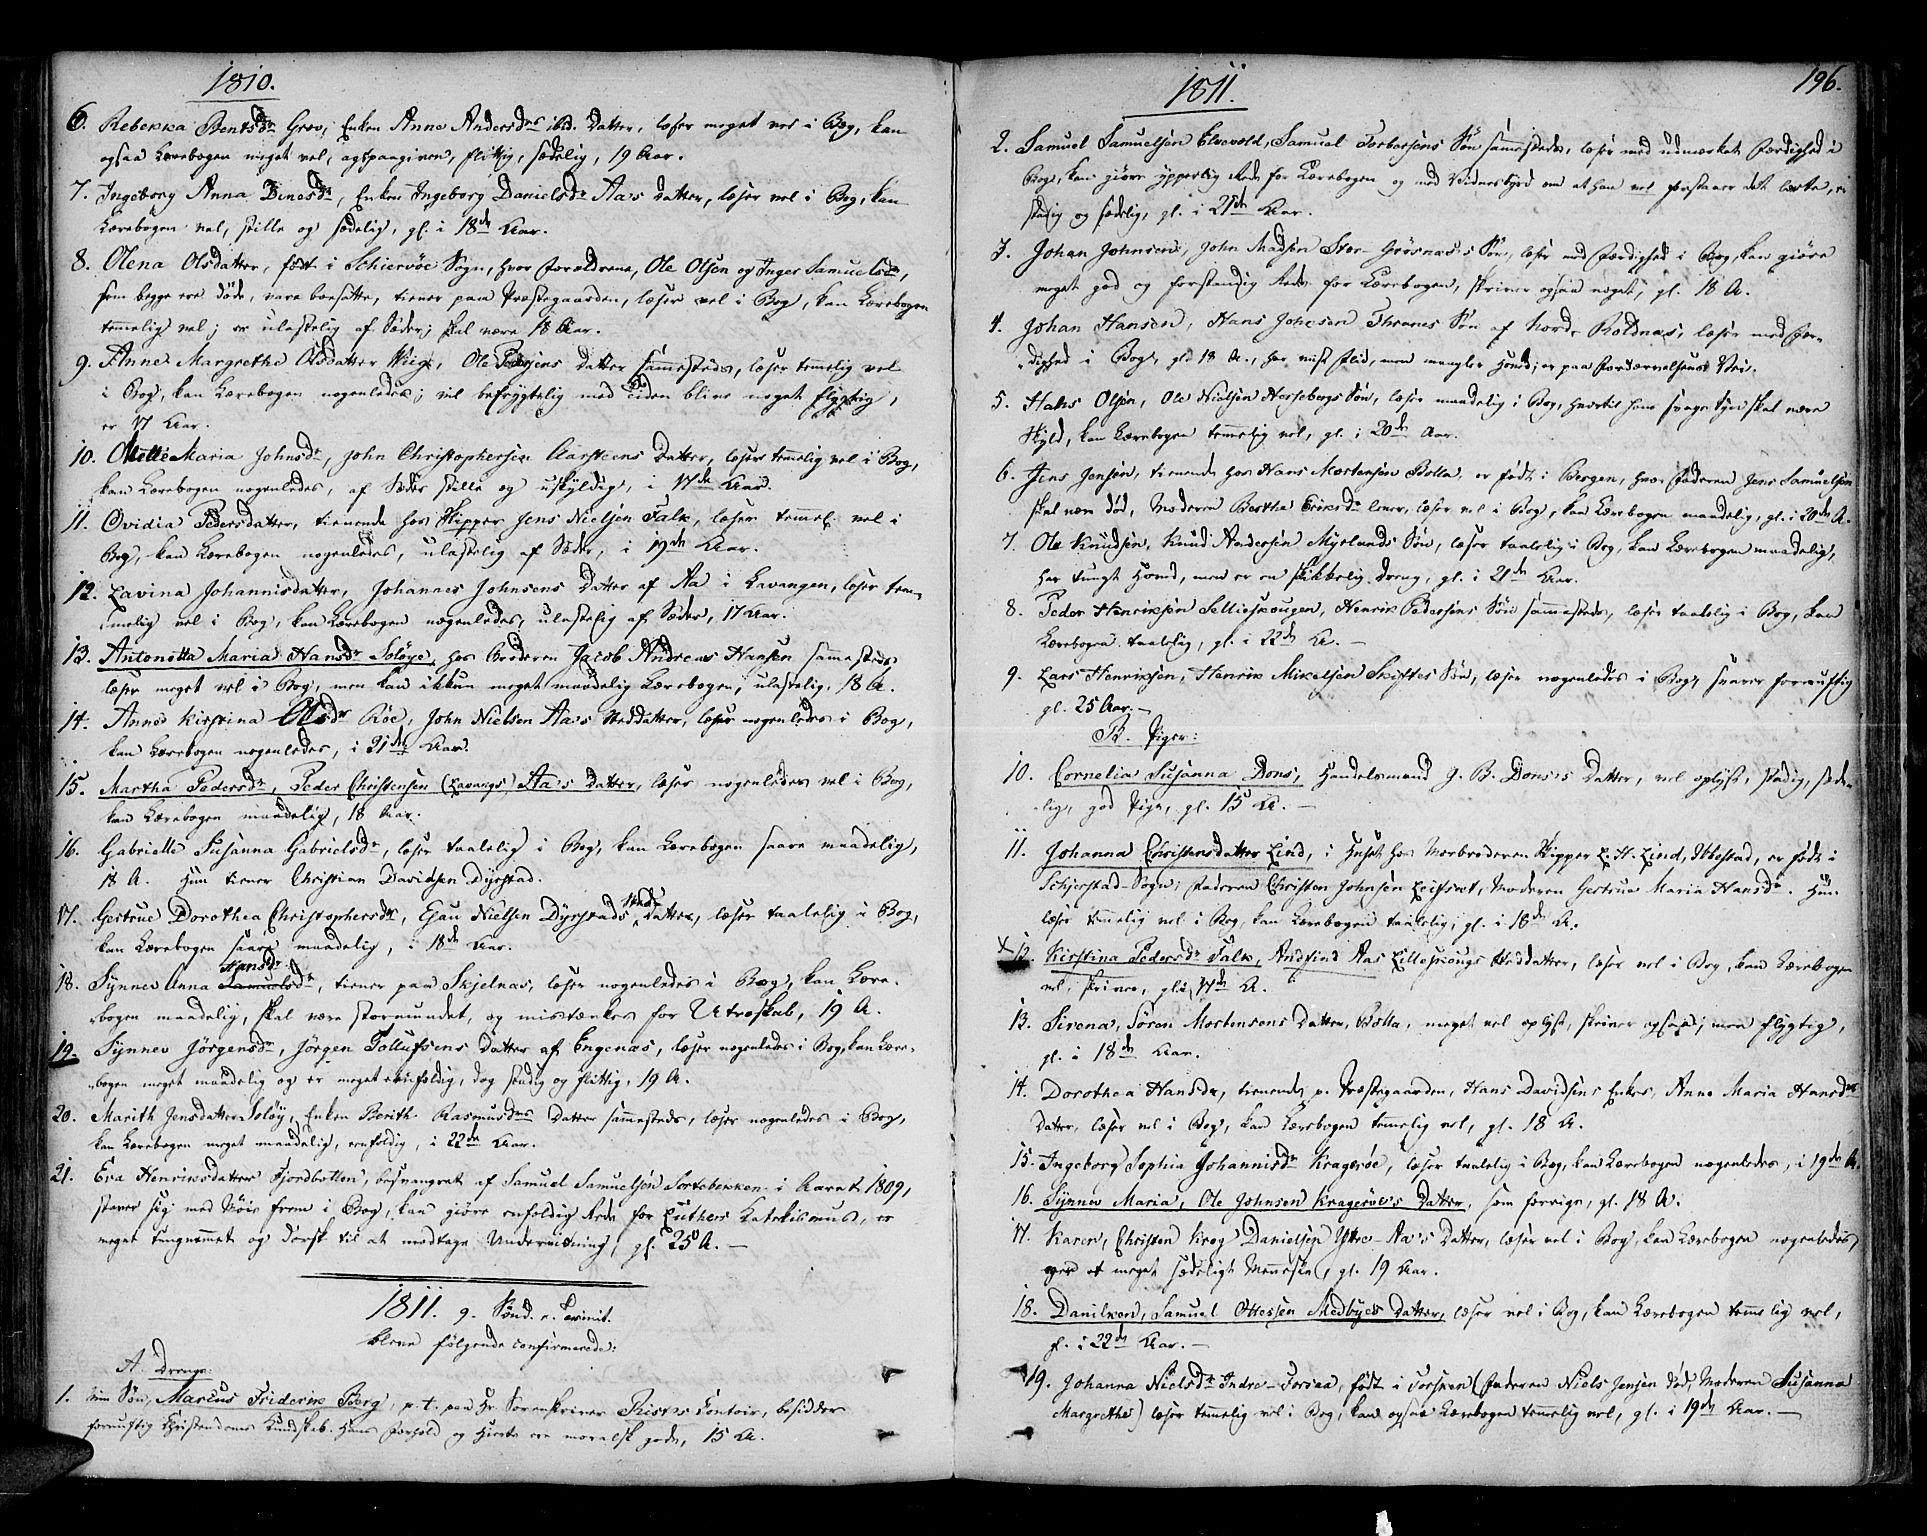 1810.
6. Rebekka Bentsdr Grov, Enken Anne Andersdrs ibid. Datter, læser meget vel i Bog, kan
ogsaa Lærebogen meget vel, agtpaagiven, flittig, sædelig, 19 Aar.
7. Ingeborg Anna Dinesdr, Enken Ingeborg Danielsdr Aa's Datter, læser vel i Bog, kan
Lærebogen vel, stille og sædelig, gl. i 18de Aar.
8. Olena Olsdatter, født i Schiervøe Sogn, hvor Forældrene, Ole Olsen og Inger Samuelsdr,
som begge ere døde, vare boesatte, tiener paa Præstegaarden, læser vel i Bog, kan Lærebogen
temmelig vel; er ulastelig af Sæder; skal være 18 Aar.
9. Anne Margrethe Olsdatter Wiig, Ole Pedersens Datter sammesteds, læser temmelig vel
i Bog, kan Lærebogen nogenledes; vil befrygtelig med Tiden blive noget flygtig,
er 17 Aar.
10. Olelle Maria Johnsdr, John Christophersen Aarsteens Datter, læser temmelig vel i Bog,
kan Lærebogen nogenledes, af Sæder stille og uskyldig, i 17de Aar.
11. Ovidia Pedersdatter, tienende hos Skipper Jens Nielsen Falk, læser temmel. vel i
Bog, kan Lærebogen nogenledes, ulastelig af Sæder, i 19de Aar.
12. Lavina Johannisdatter, Johannes Johnsens Datter af Aa i Lavangen, læser tem-
melig vel i Bog, kan Lærebogen nogenledes, ulastelig af Sæder, 17 Aar.
13. Antonetta Maria Hansdr Soløye, hos Broderen Jacob Andreas Hansen sammesteds
læser meget vel i Bog, men kan ikkun meget maadelig Lærebogen, ulastelig, 18 A.
14. Anne Kirstina Olsdr Røe, John Nielsen Aa's Steddatter, læser nogenledes i Bog,
kan Lærebogen nogenledes, i 21de Aar.
15. Martha Pedersdr, Peder Christensen (Lavangs) Aa's Datter, læser nogenledes vel i Bog,
kan Lærebogen maadelig, 18 Aar.
16. Gabrielle Susanna Gabrielsdr, læser taalelig i Bog, kan Lærebogen saare maadelig,
18 A. Hun tiener Christian Davidsen Dyrstad.
17. Gertrue Dorothea Christophersdr, Esau Nielsen Dyrstads Sted Datter, læser taalelig i Bog,
kan Lærebogen saare maadelig, i 18de Aar.
Hansdr
18. Synnev Anna Samuelsdr, tiener paa Skjelnes, læser nogenledes i Bog, kan Lære-
bogen maadelig, skal være stormundet, og mistænkes for Utroskab, 19 A.
19. Synnev Jørgensdr, Jørgen Tollufsens Datter af Engenæs, læser nogenledes i Bog, kan Lære-
bogen meget maadelig og er meget eenfoldig, dog stadig og flittig, 19 A.
20. Marith Jensdatter Soløy, Enken Berith Rasmusdrs Datter sammesteds, læser nogenledes i Bog,
kan Lærebogen meget maadelig, eenfoldig, i 22de Aar.
21. Eva Henriksdatter Fjordbotten, besvangret af Samuel Samuelsen Sortebekken i Aaret 1809,
staver sig med Møie frem i Bog, kan giøre enfoldig Rede for Luthers Katekismus, er
meget tungnemmet og dorsk til at modtage Underviisning, gl. 25 A. —
1811. 9. Sønd. e. Trinit.
bleve følgende confirmerede:
A. Drenge:
1. Min Søn, Marcus Friderik Borg, p. t. paa Hr Sorenskriver Rist's Contoir, besidder
fornuftig Christendoms Kundskab. Hans Forhold og Hierte ere moralsk gode, 15 A.
1811.
196.
2. Samuel Samuelsen Elvevold, Samuel Torbersens Søn sammesteds, læser med udmærket Færdighed i
Bog, kan giøre ypperlig Rede for Lærebogen og med Vidnesbyrd om at han vel forstaaer det lærte, er
stadig og sædelig, gl. i 21de Aar.
3. Johan Johnsen, John Madsen Stor-Grøsnæs's Søn, læser med Færdighed i Bog, kan giøre
meget god og forstandig Rede for Lærebogen, skriver ogsaa noget, gl. 18 A.
4. Johan Hansen, Hans Johesen Thranes Søn af Nordr Roldnæs, læser med Fær-
dighed i Bog, gl. 18 A., har viist Flid, men mangler Hoved; er paa Fordærvelsens Vei.
5. Hans Olsen, Ole Nielsen Hessebergs Søn, læser maadelig i Bog, hvortil hans svage Syn skal være
Skyld, kan Lærebogen temmelig vel, gl. i 20de Aar.
6. Jens Jensen, tienende hos Hans Mortensen Bolla, er født i Bergen, hvor Faderen Jens Samuelsen
skal være død, Moderen Berthe Eriksdr lever, læser vel i Bog, kan Lærebogen maadelig, gl. i 20de A.
7. Ole Knudsen, Knud Andersen Myrlands Søn, læser taalelig i Bog, kan Lærebogen maadelig,
har tungt Hoved, men er en skikkelig Dreng, gl. i 21de Aar.
8. Peder Henriksen Sellieskougen, Henrik Pedersens Søn sammesteds, læser taalelig i Bog, kan
Lærebogen taalelig, gl. i 22de A. —
9. Lars Henriksen, Henrik Mikelsen Skiftes Søn, læser nogenledes i Bog, svarer fornuftig
gl. 25 Aar. —
B. Piger:
10. Cornelia Susanna Dons, Handelsmand J. B. Dons's Datter, vel oplyst, stadig, sæde-
lig, god Pige, gl. 15 A. —
11. Johanna Christensdatter Lind, i Huset hos Morbroderen Skipper L. H. Lind, Ibbestad, er født i
Schjerstad-Sogn; Faderen Christen Johnsen, Moderen Gertrue Maria Hansdr. Hun
læser temmelig vel i Bog, kan Lærebogen taalelig, gl. i 16de A.
x 12. Kirstina Pedersdr Falk, Andfind Aas Lilleskougs Steddatter, læser vel i Bog, kan Lærebogen
vel, skriver, gl. i 17de A.
13. Sirena, Søren Mortensens Datter, Bolla, meget vel oplyst, skriver ogsaa; men flygtig,
gl. i 18de Aar.
14. Dorothea Hansdr, tienende p. Præstegaarden, Hans Davidsens Enkes, Anne Maria Hansdrs
Datter, læser vel i Bog, kan Lærebogen temmelig vel, gl. 18 A.
15. Ingeborg Sophia Johannisdr Kragerøe, læser taalelig i Bog, kan Lærebogen nogenledes, i 19de A.
16. Synnev Maria, Ole Johnsen Kragerøe's Datter, som forrige, gl. 18 A.
17. Karen, Christen Krog Danielsen Yttre-Aa's Datter, læser vel i Bog, kan Lærebogen nogenledes,
er et meget sædeligt Menneske, gl. 19 Aar.
18. Danilken, Samuel Ottesen Medbyes Datter, læser vel i Bog, kan Lærebogen temmelig vel,
gl. i 22de Aar. —
19. Johanna Nielsdr Indre-Forsaa, født i Torsken (Faderen Niels Jensen død, Moderen Susanna
Margrethe) læser temmelig vel i Bog, kan ogsaa Lærebogen temmelig vel, gl. i 19de Aar. —